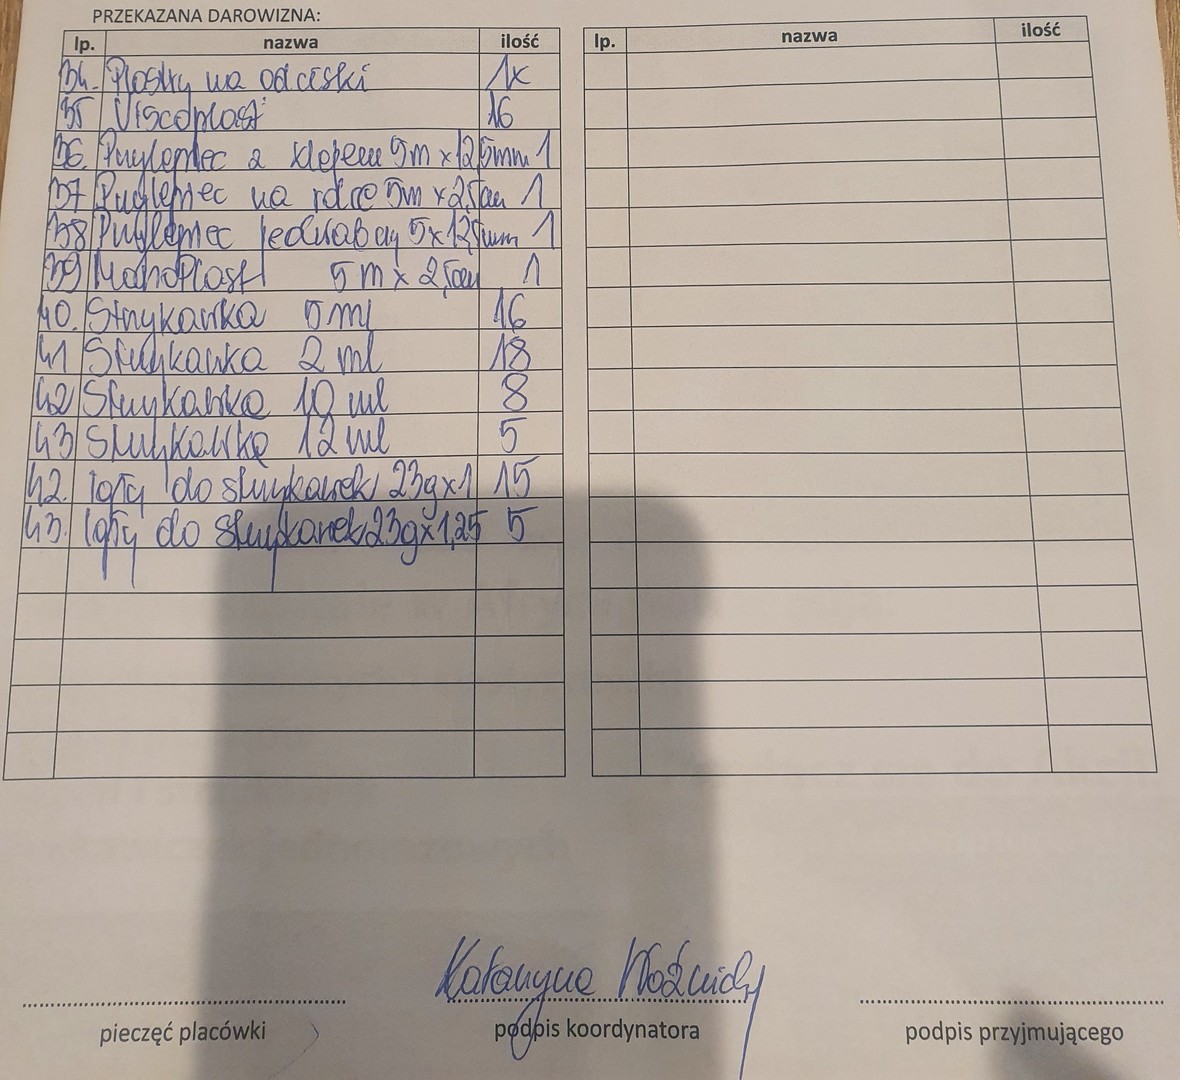 PRZEKAZANA DAROWIZNA:
lp. nazwa ilość
34. Plastry na odciski 1x
35 Viscoplast 16
36. Przylepiec z klejem 5m x 12,5mm 1
37 Przylepiec na rolce 5m x 2,5cm 1
38 Przylepiec jedwabny 5x12,5mm 1
39 Monoplast 5m x 2,5cm 1
40. Strzykawka 5ml 16
41 Strzykawka 2 ml 18
42 Strzykawka 10 ml 8
43 Strzykawka 12 ml 5
42. Igły do strzykawek 23g x 1 15
43. Igły do strzykawek 23g x 1,25 5
lp. nazwa ilość
Katarzyna
pieczęć placówki podpis koordynatora podpis przyjmującego